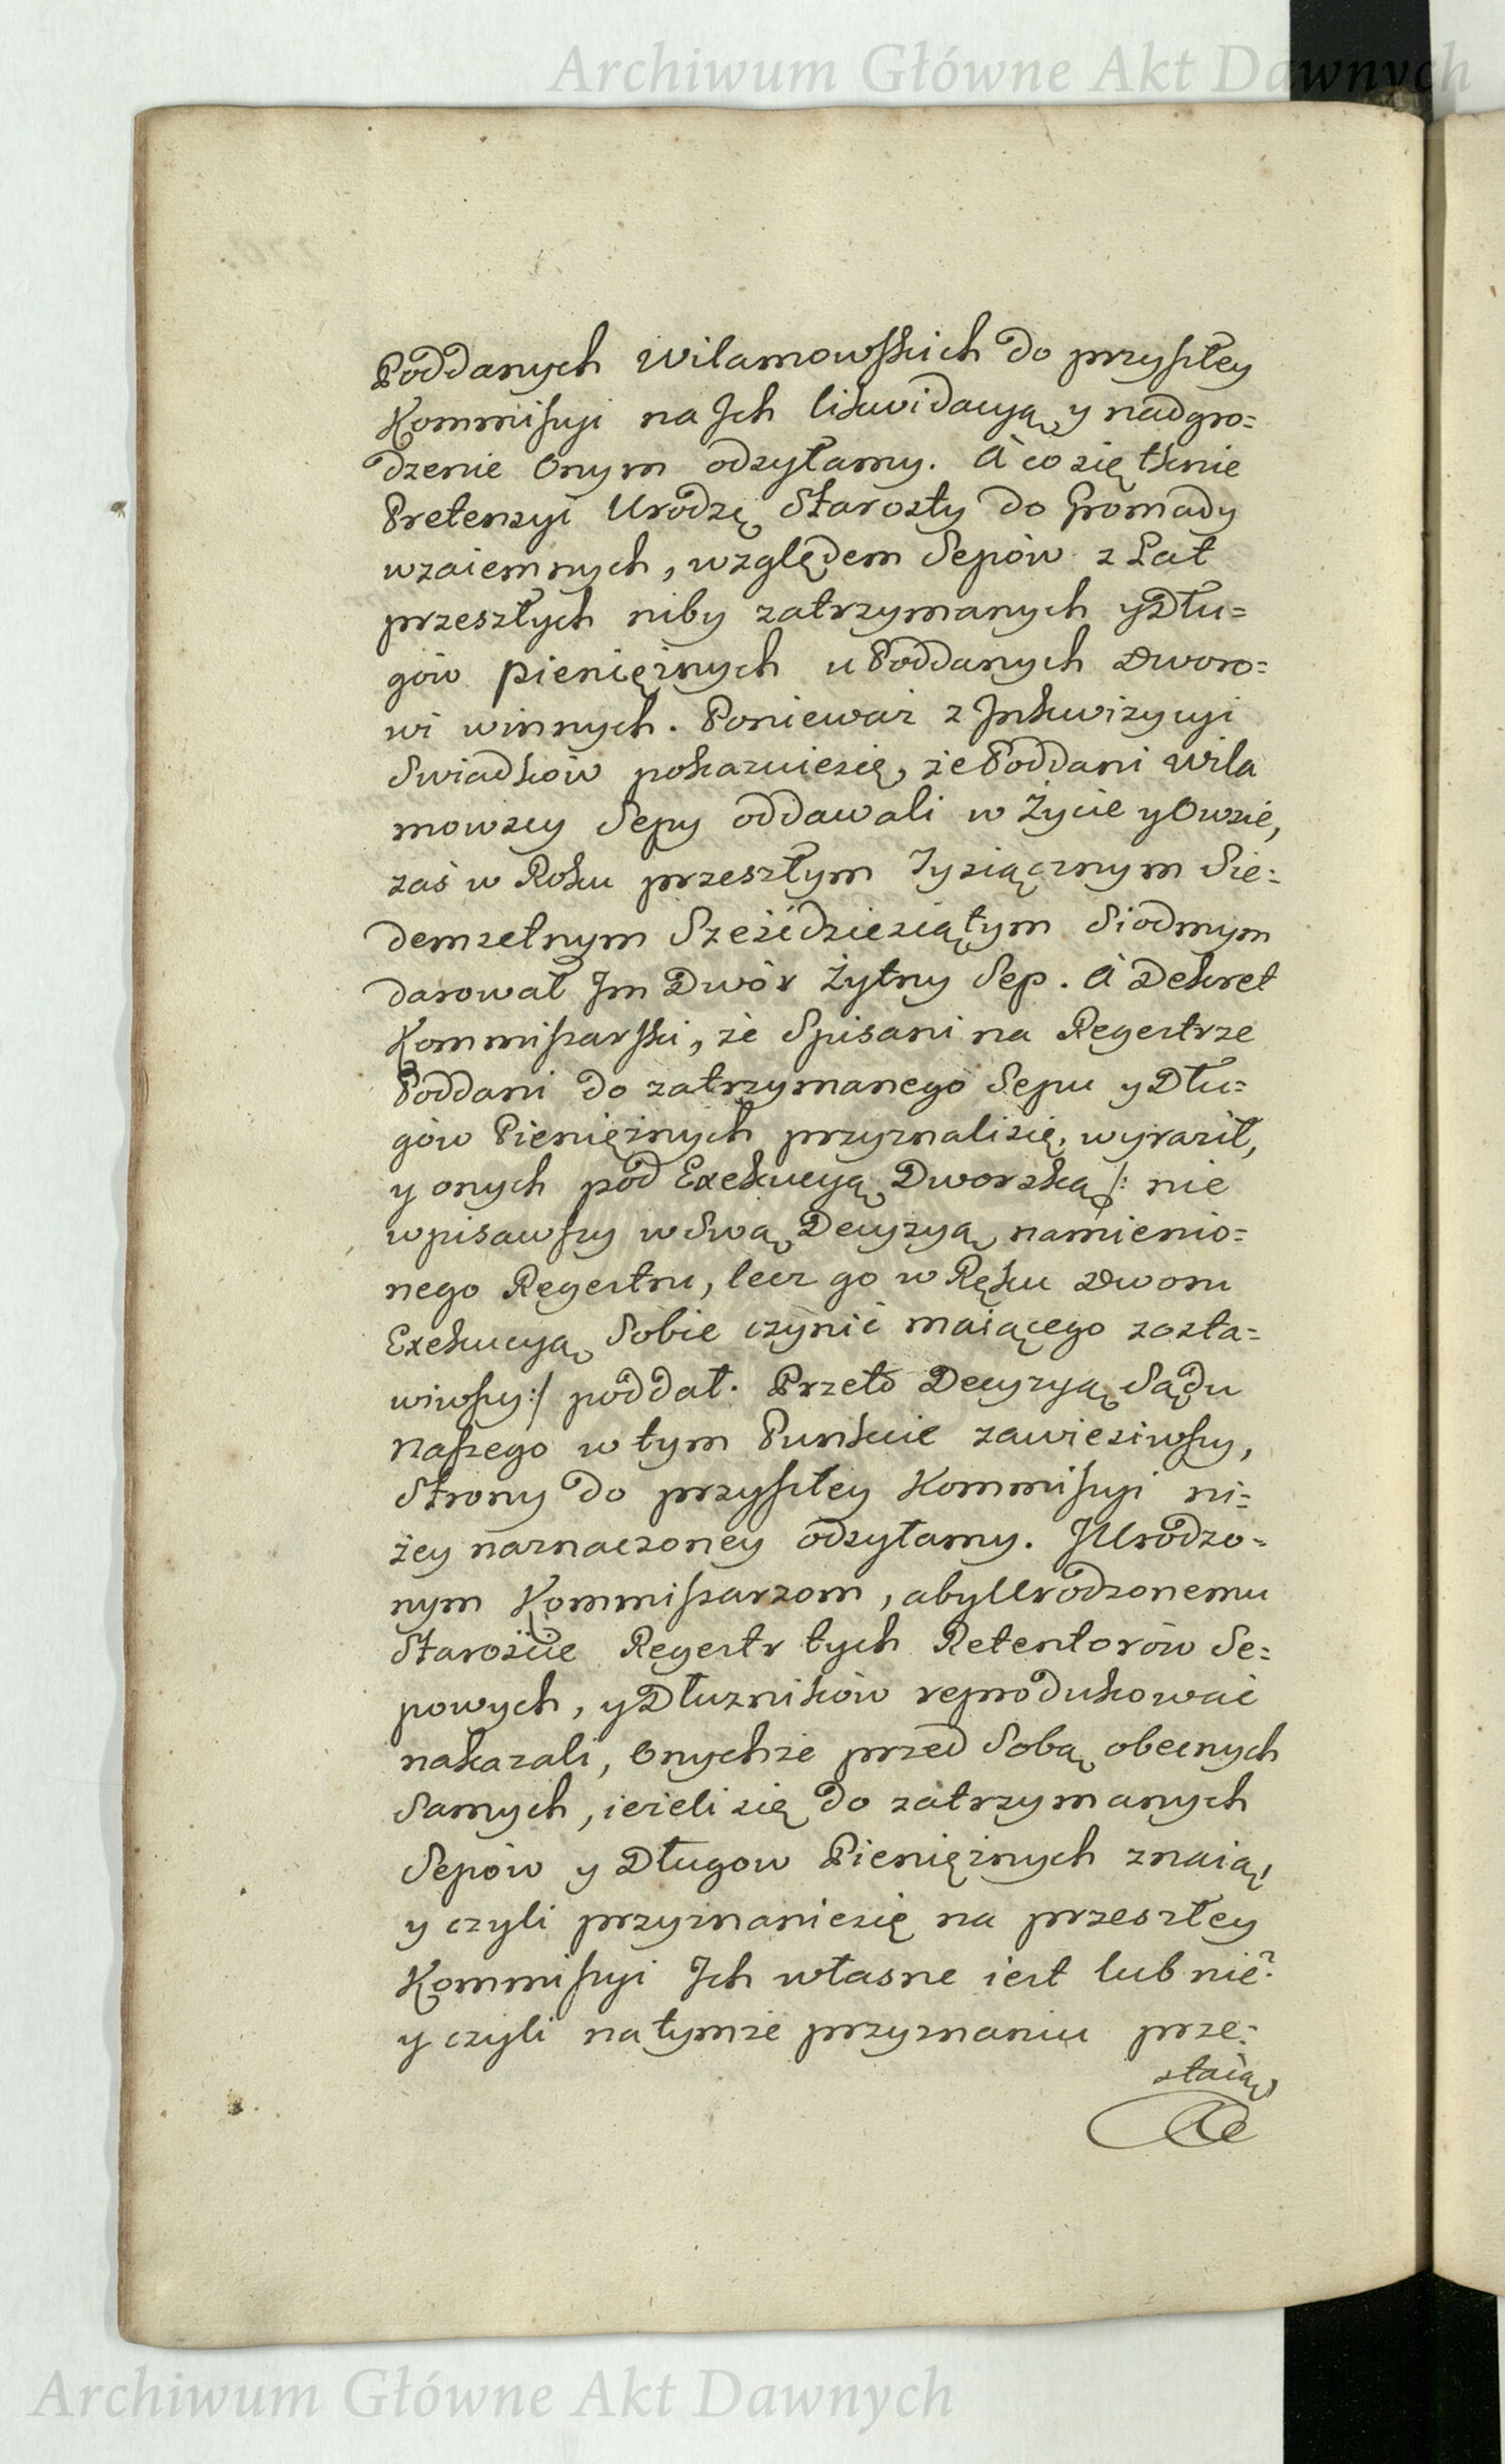 Archiwum Główne Akt Dawnych
Poddanych Wilamowskich do przyszłey
Kommissyi na Jch likwidacyą y nadgro=
dzenie Onym odsyłamy. A co się tknie
Pretensyi Urodzę Starosty do Gromady
wzaiemnych, względem Sepów z Lat
przeszłych niby zatrzymanych y Dłu=
gów pieniężnych u Poddanych Dworo=
wi winnych. Ponieważ z Jnkwizycyi
Swiadków pokazuiesię, że Poddani Wila
mowscy Sepy oddawali w Życie y Owsie,
zaś w Roku przeszłym Tysiącznym Sie=
demsetnym Sześćdziesiątym Siodmym
darował Jm Dwór Żytny Sep. A Dekret
Kommissarski, że Spisani na Regestrze
Poddani do zatrzymanego Sepu y Dłu=
gów Pieniężnych przyznalisię, wyraził,
y onych pod Exekucyą Dworską /: nie
wpisawszy w Swą Decyzyą namienio=
nego Regestru, lecz go w Ręku Dworu
Exekucyą Sobie czynić maiącego zosta=
wiwszy :/ poddał. Przeto Decyzyą Sądu
naszego w tym Punkcie zawiesiwszy,
Strony do przyszłey Kommissyi ni=
żey naznaczoney odsyłamy. J Urodzo=
nym Kommissarzom, aby Urodzonemu
Staroście Regestr tych Retentorów Se=
powych, y Dłuzników reprodukować
nakazali, Onychże przed Sobą obecnych
Samych, ieżeli się do zatrzymanych
Sepów y Długow Pieniężnych znaią,
y czyli przyznaniesię na przeszłey
Kommissyi Jch własne iest lub nie?
y czyli natymże przyznaniu prze=
staią,
Archiwum Główne Akt Dawnych